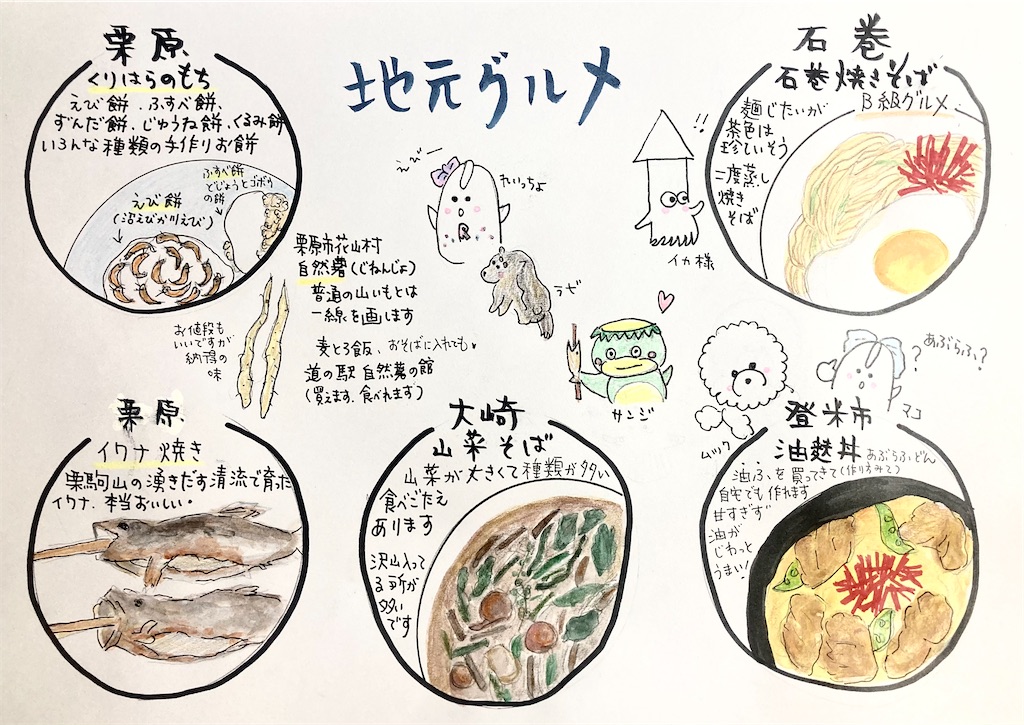 地元グルメ
栗原
くりはらのもち
えび餅、ふすべ餅、
ずんだ餅、じゅうね餅、くるみ餅
いろんな種類の手作りお餅
ふすべ餅
どじょうとゴボウ
の餅
えび餅
(沼えびか川えび)
栗原市花山村
自然薯(じねんじょ)
普通の山いもとは
一線を画します
麦とろ飯、おそばに入れても
道の駅 自然薯の館
(買えます、食べれます)
お値段も
いいですが
納得の
味
れいっちょ
R
ラゼ
イカ様
!!
サンジ
ムック
マコ
あぶらふ?
?
石巻
石巻焼きそば
B級グルメ
麺じたいが
茶色は
珍しいそう
二度蒸し
焼き
そば
栗原
イワナ焼き
栗駒山の湧きだす清流で育った
イワナ、本当おいしい。
大崎
山菜そば
山菜が大きくて種類が多い
食べごたえ
あります
沢山入って
る所が
多い
です
登米市
油麸丼 あぶらふどん
油ふを買ってきて(作りすみで)
自宅でも作れます
甘すぎず
油が
じわっと
うまい!